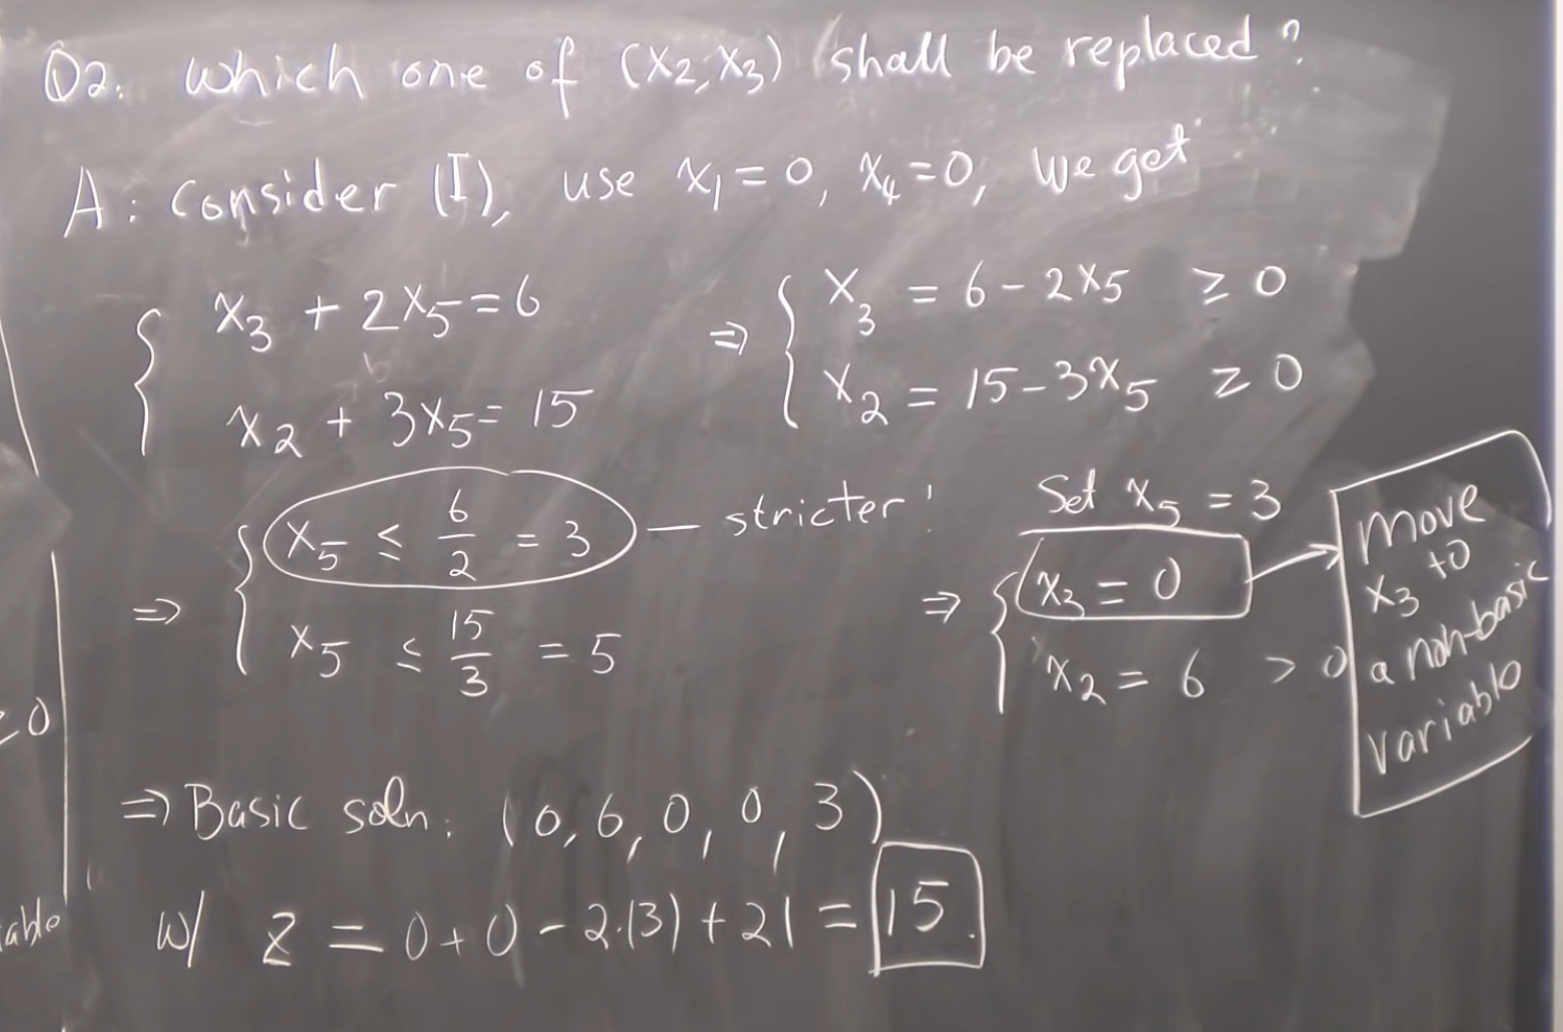 Q2. Which one of (x₂, x₃) shall be replaced?
A: Consider (I), use x₁ = 0, x₄ = 0, we get
{ x₃ + 2x₅ = 6
x₂ + 3x₅ = 15
⇒ { x₃ = 6 - 2x₅ ≥ 0
x₂ = 15 - 3x₅ ≥ 0
⇒ { x₅ ≤ 6/2 = 3 — stricter!
x₅ ≤ 15/3 = 5
Set x₅ = 3
⇒ { x₃ = 0
x₂ = 6 > 0
move
x₃ to
a non-basic
variable
≥ 0
⇒ Basic soln: (0, 6, 0, 0, 3)
able
w/ z = 0 + 0 - 2·(3) + 21 = 15.